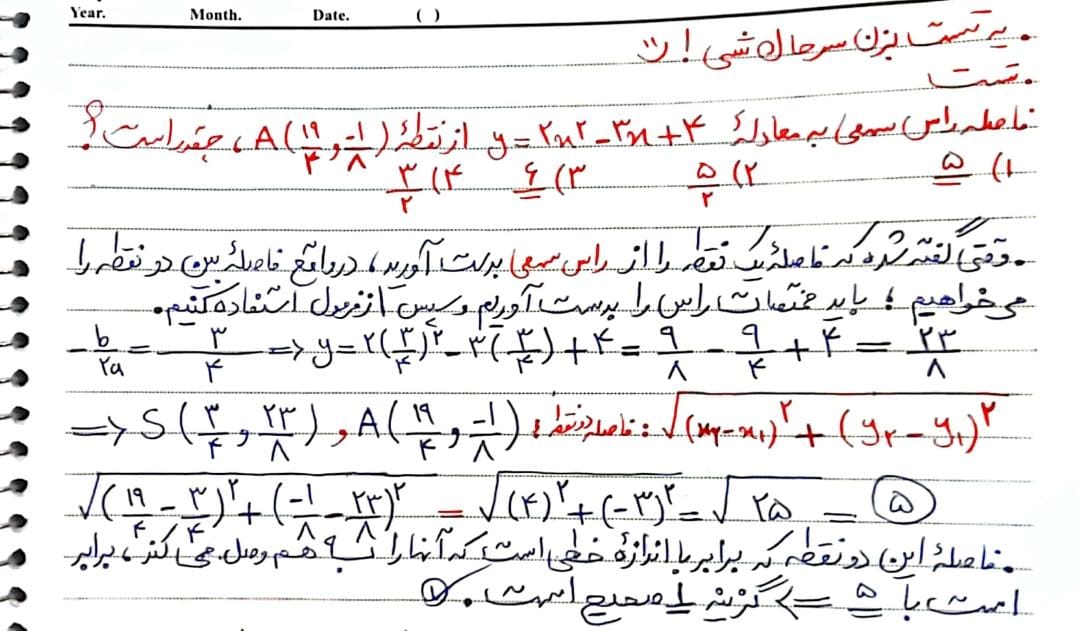 Year. Month. Date. ( )
. یه تست بزن سرحال شی !
. تست
فاصله راس سهمی به معادلهٔ y=۲x²-۳x+۴ از نقطهٔ A(۱۹/۴ , -۱/۸) ، چقدر است؟
۱) ۵ ۲) ۵/۲ ۳) ۶ ۴) ۳/۲
. وقتی گفته شده که فاصلهٔ یک نقطه را از راس سهمی بدست آورید، درواقع فاصلهٔ بین دو نقطه را
می‌خواهیم ؛ باید مختصات راس را بدست آوریم و سپس از فرمول استفاده کنیم.
-b/۲a = ۳/۴ => y=۲(۳/۴)²-۳(۳/۴)+۴ = ۹/۸ - ۹/۴ + ۴ = ۲۳/۸
=> S(۳/۴ , ۲۳/۸) , A(۱۹/۴ , -۱/۸) ; فاصله دو نقطه : √((x₂-x₁)²+(y₂-y₁)²)
√((۱۹/۴ - ۳/۴)²+(-۱/۸ - ۲۳/۸)²) = √((۴)²+(-۳)²) = √۲۵ = ۵
. فاصلهٔ این دو نقطه که برابر با اندازهٔ خطی است که آنها را به هم وصل می‌کند، برابر
است با ۵ => گزینه ۱ صحیح است.